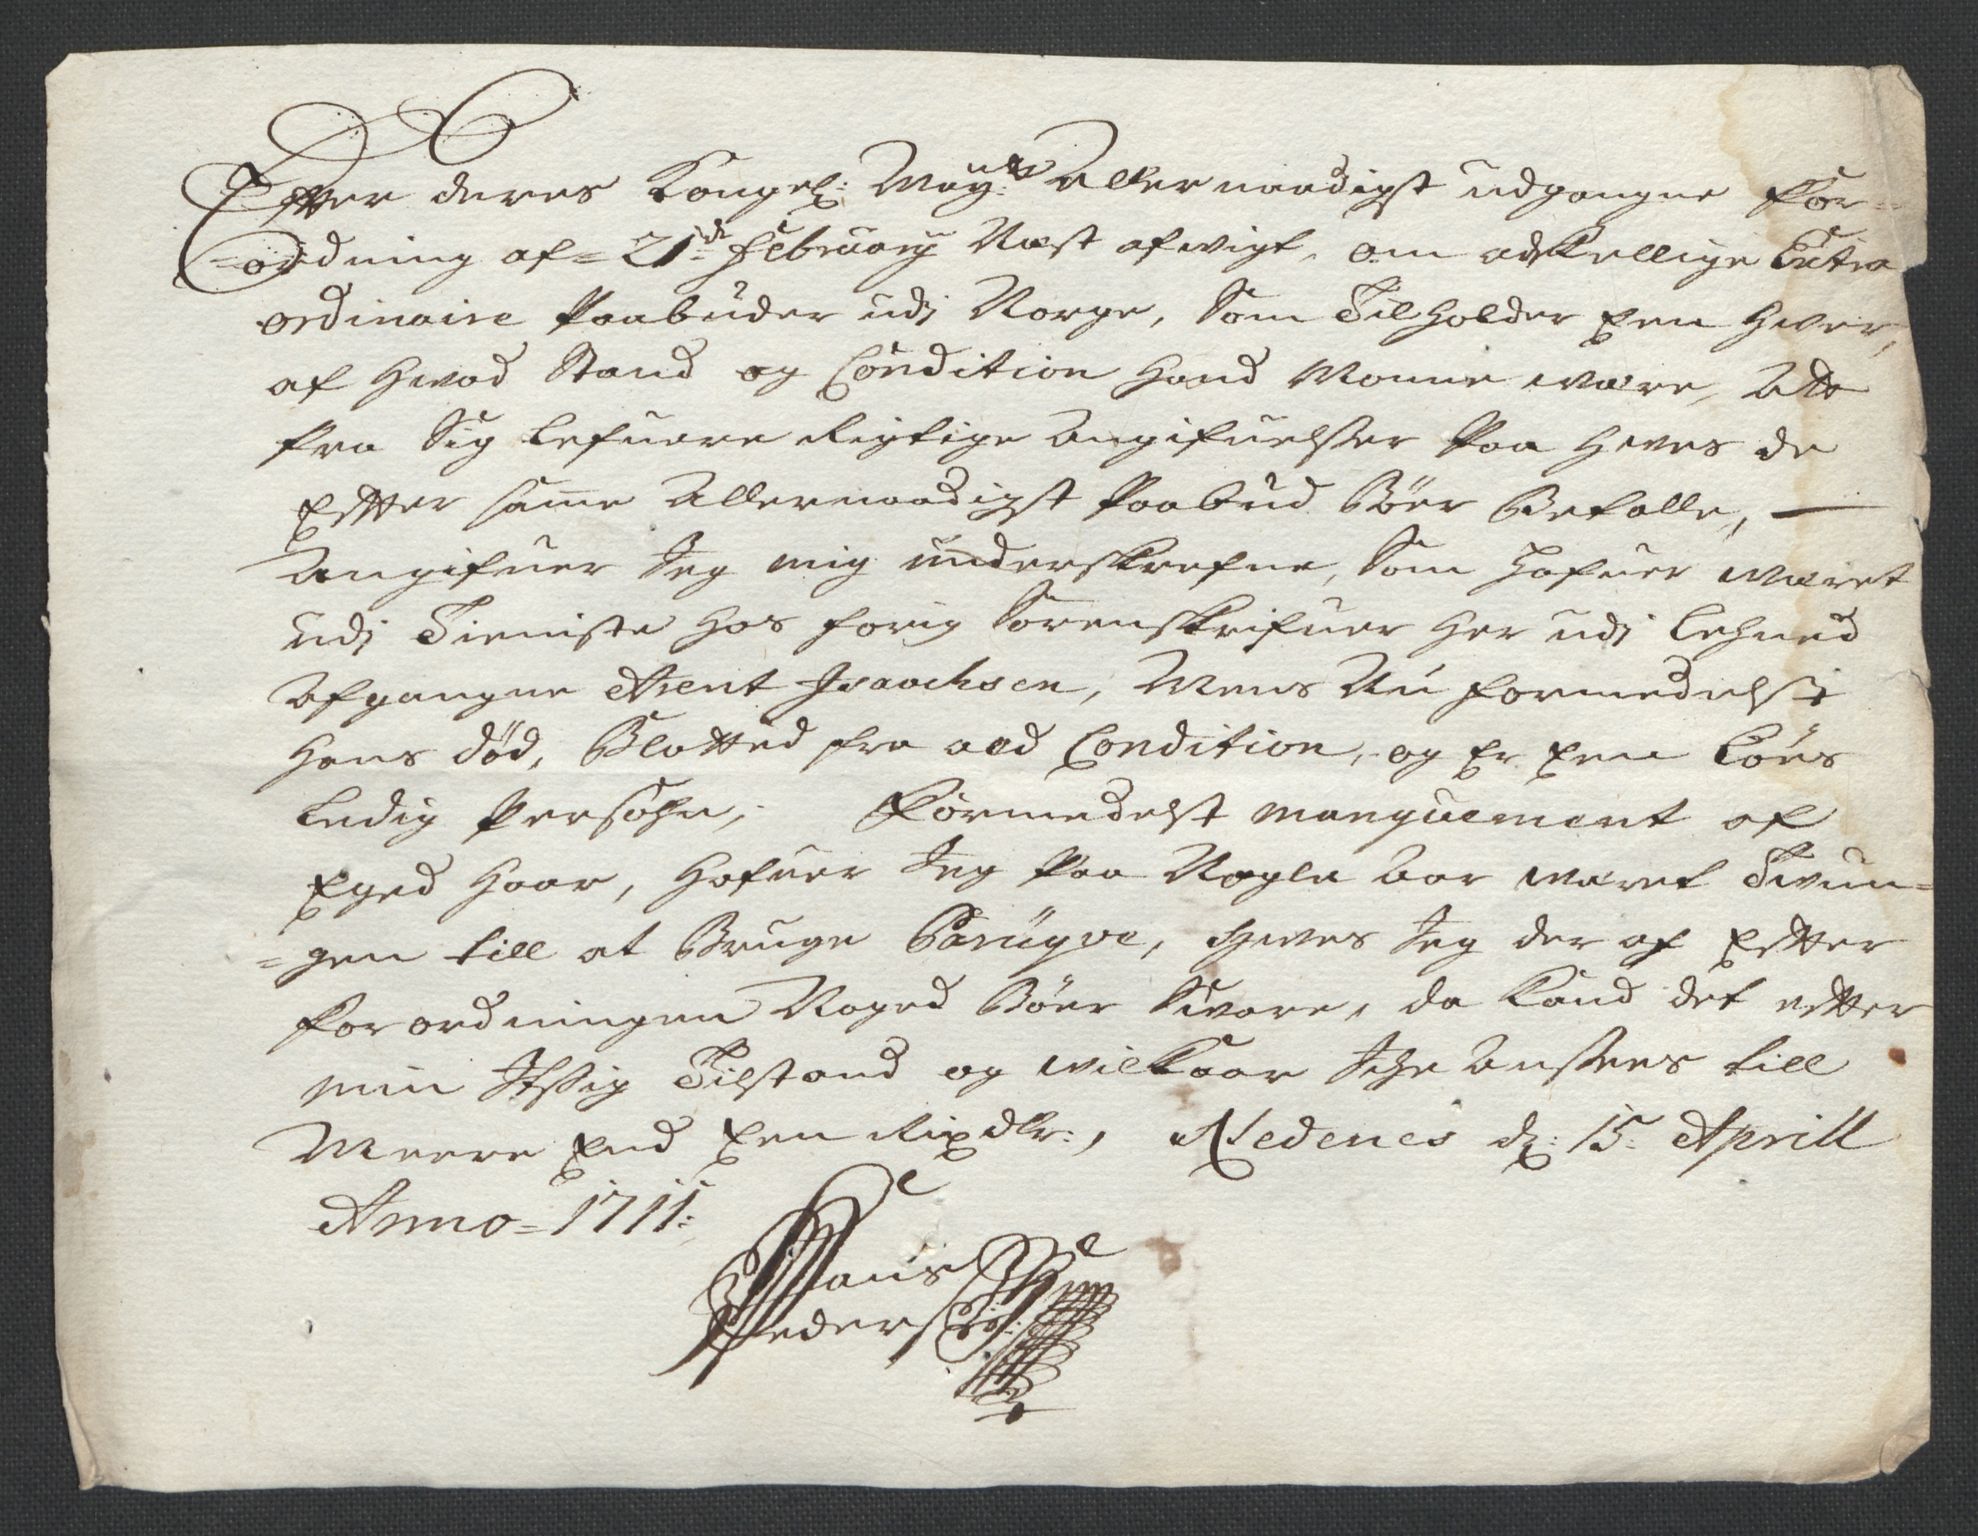 Efter deres Kongel: May:ts Aller naadigst udgangne For=
=ordning af = 21de February Næst afvigt, om adskellige Extra
ordinaire Paabuder udj Norge, Som Tilholder Een Hver,
af Hvad Stand og Condition Hand Monne være, Att
fra Sig lefuere Rigtige Angifuelser Paa Hves de
Efter samme Allernaadigst Paabud Bør Betalle,
Angifuer Jeg mig underskrefne, Som Hafuer været
udj Tieniste Hos forig Sorenskrifuer Her udj Lehned
Afgangne Arent Isaachsen, Mens Nu formedelst
Hans død, Blotted fra ald Condition, og Er Een Løes
Ledig Persohn; Formedelst manquement af
Eged Haar, Hafuer Jeg Paa Nogle Aar været Tvun=
=gen till at Bruge Paruque, Hves Jeg der af Efter
forordningen Noged Bør Svare, da Kand det efter
min Itzig Tilstand og vilkaar Iche Ansees till
Meere End Een Rixdlr:, Nedenes d: 15: Aprill
Anno = 1711:
Hans
Peders